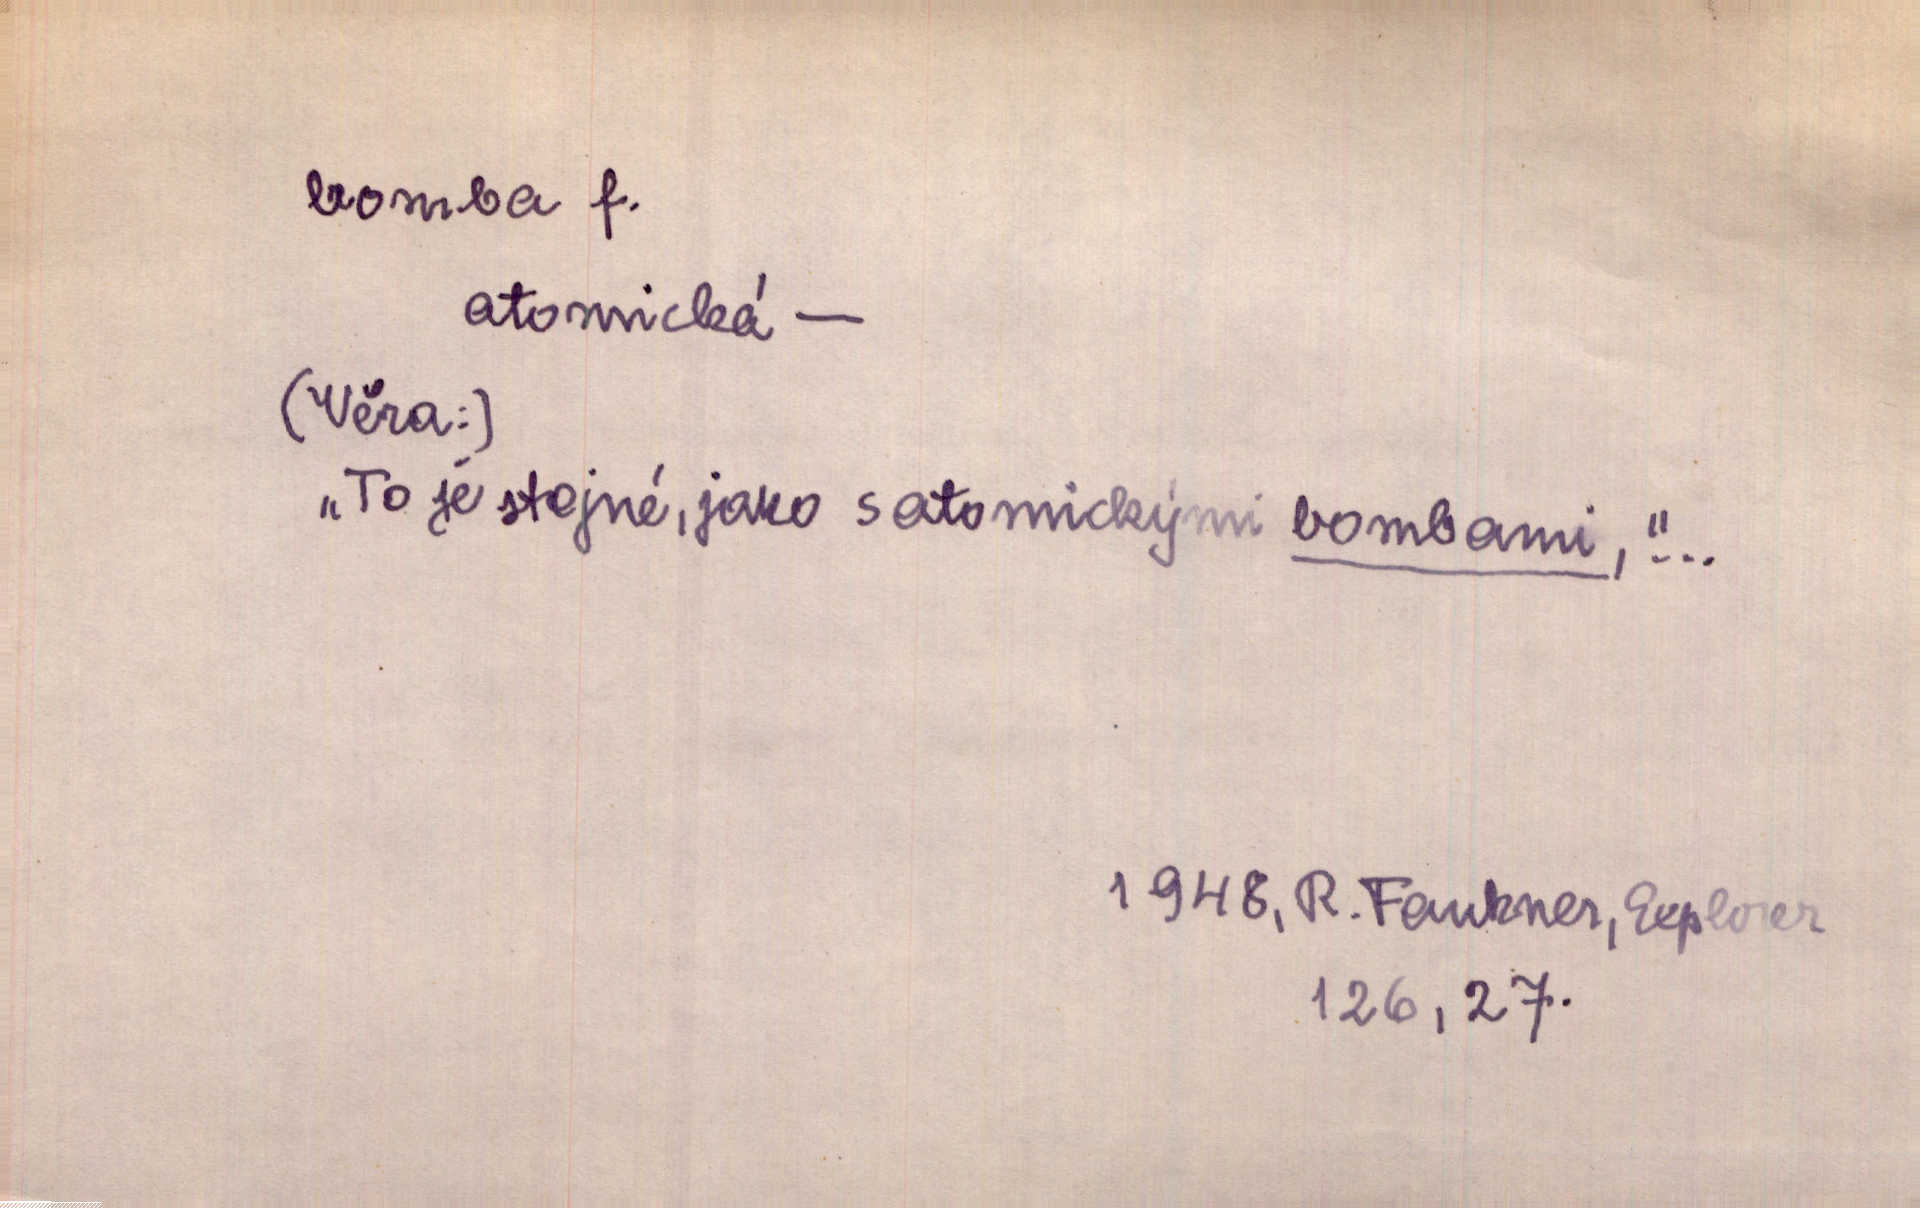 bomba f.
atomická —
(Věra:)
„To je stejné, jako s atomickými bombami,"...
1948, R. Faukner, Explorer
126, 27.